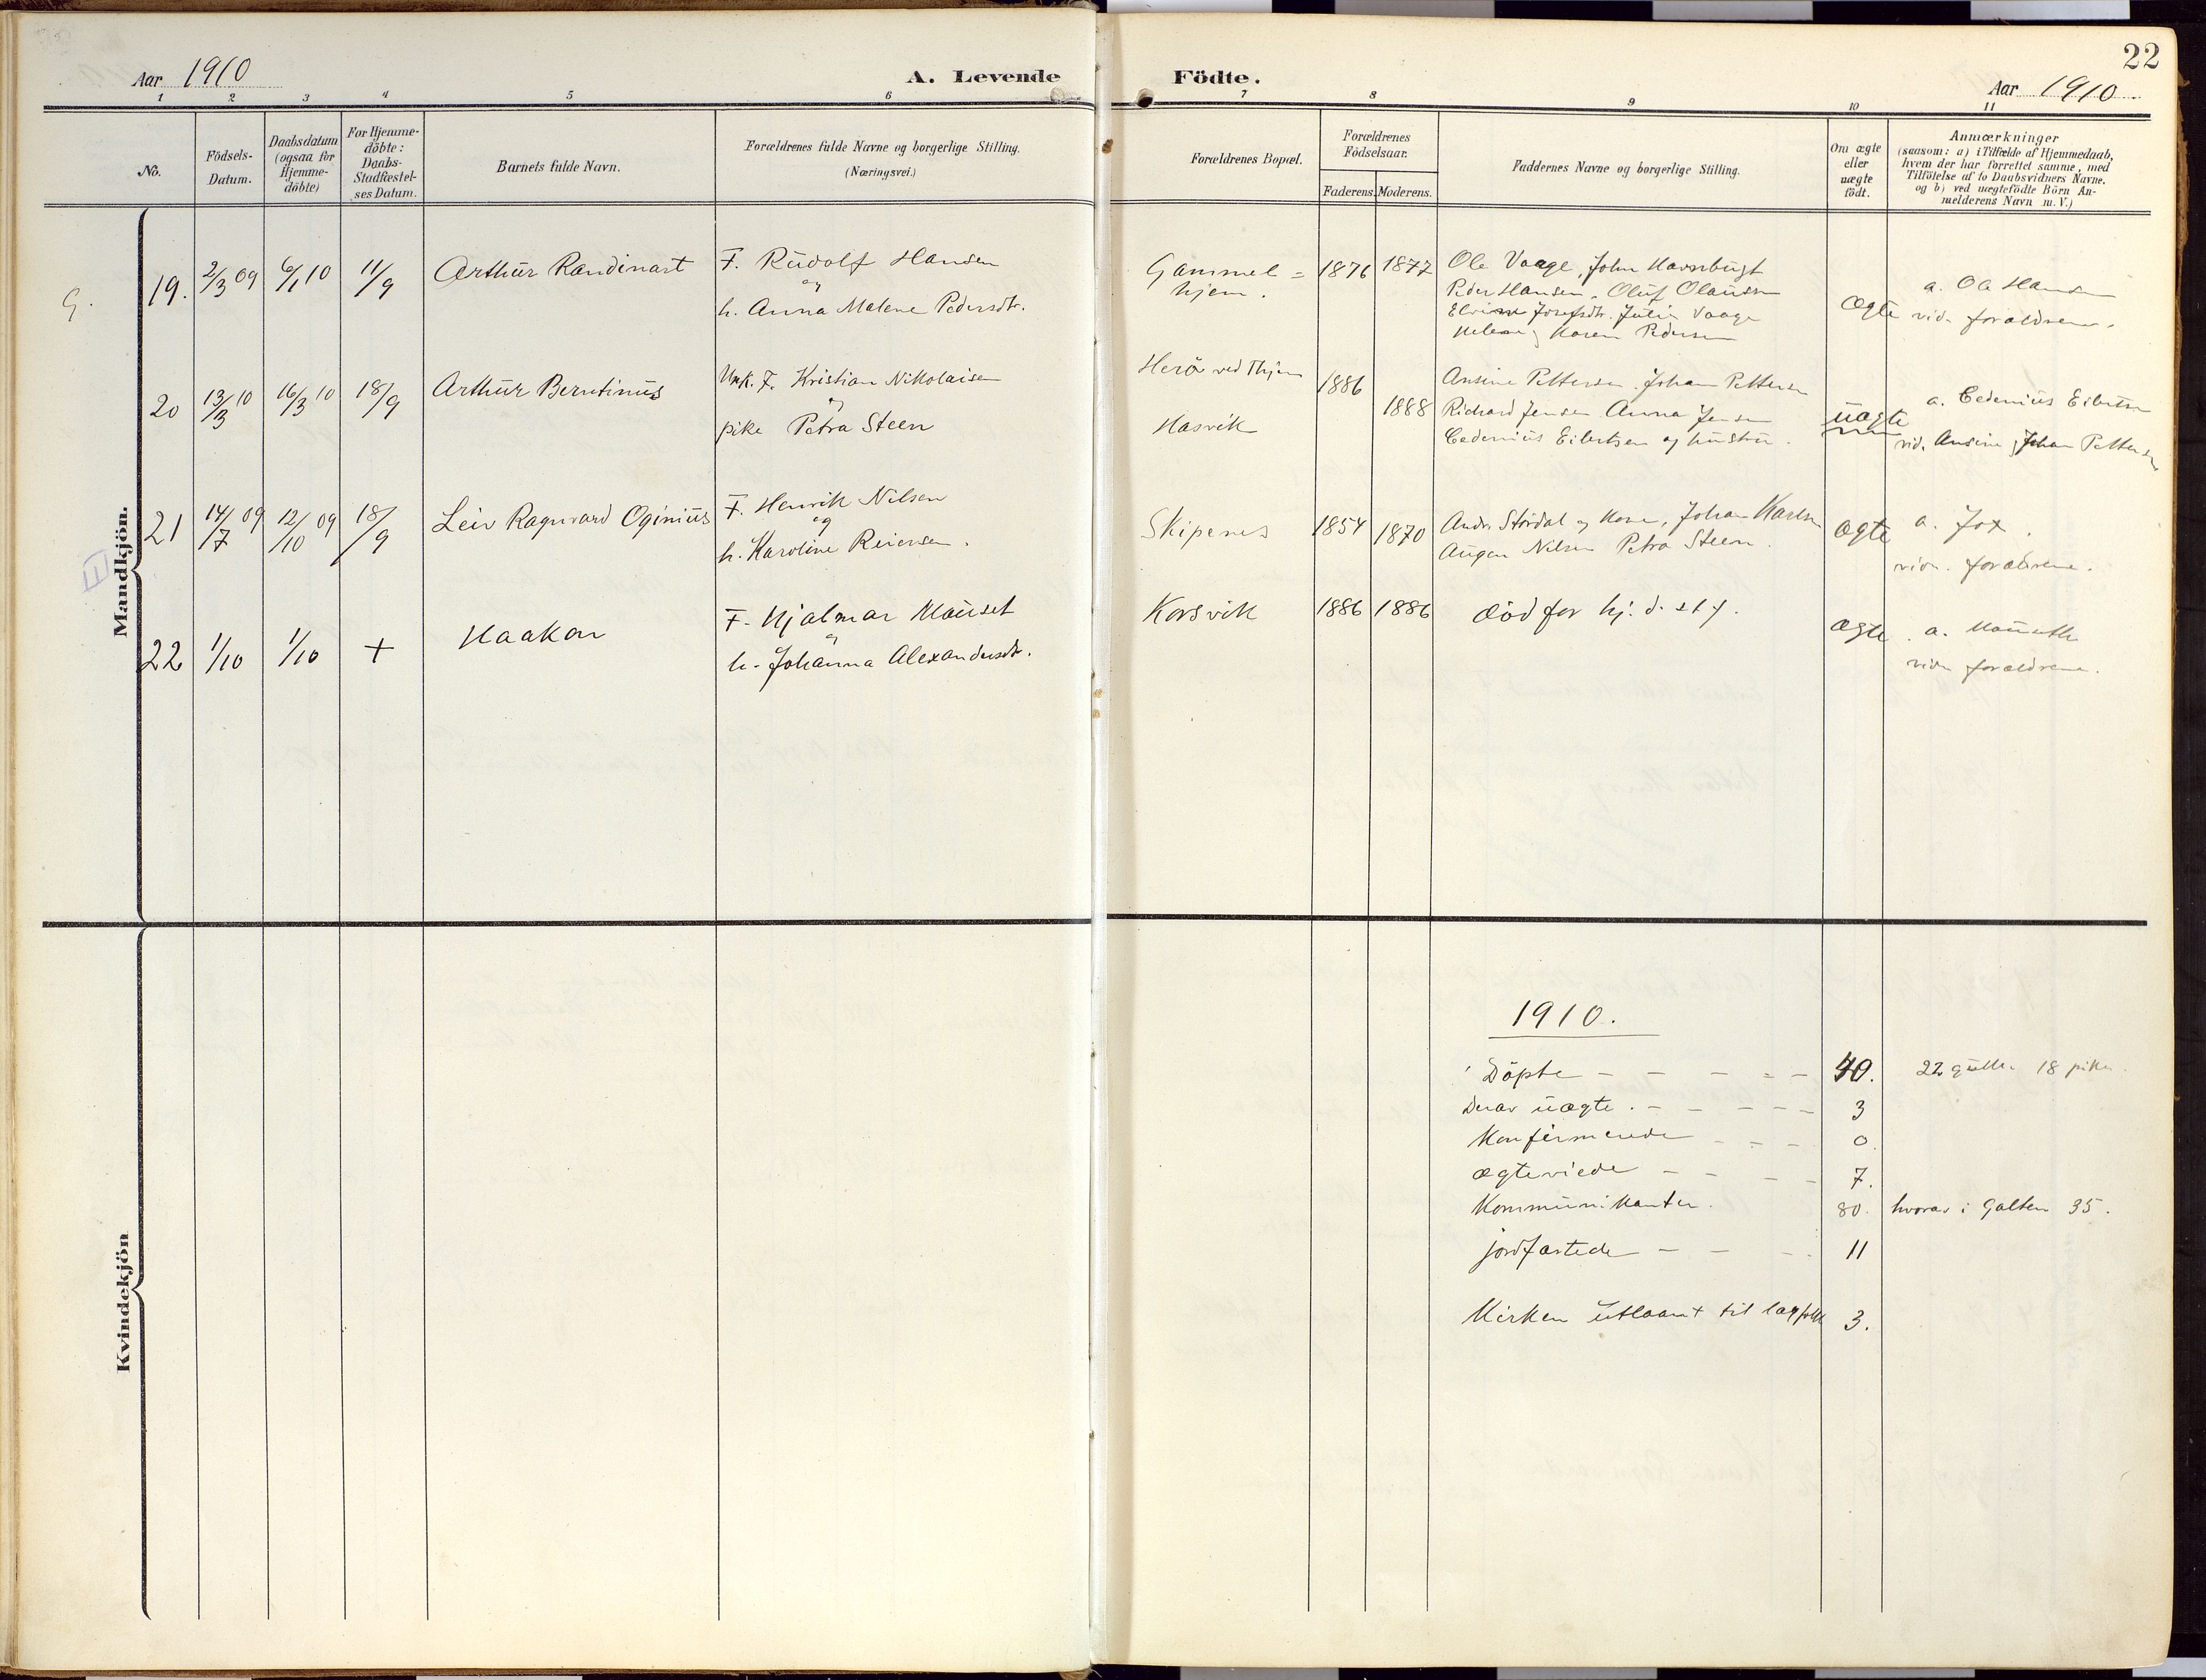 22
Aar 1910
A. Levende
Födte.
Aar 1910
1 2 3 4 5 6
7 8 9 10 11
No.
Födsels-
Datum.
Daabsdatum
(ogsaa for
Hjemme-
döbte)
For Hjemme-
döbte:
Daabs-
Stadfæstel-
ses Datum.
Barnets fulde Navn.
Forældrenes fulde Navne og borgerlige Stilling.
(Næringsvei.)
Forældrenes Bopæl.
Forældrenes
Födselsaar.
Faderens.
Moderens.
Faddernes Navne og borgerlige Stilling.
Om ægte
eller
uægte
födt.
Anmærkninger
(saasom: a) i Tilfælde af Hjemmedaab,
hvem der har forrettet samme, med
Tilföielse af to Daabsvidners Navne,
og b) ved uægtefödte Börn An-
melderens Navn m. V.)
Mandkjön.
G.
19.
2/3 09
6/1 10
11/9
Arthur Randinart
F. Rudolf Hansen
og
h. Anna Malene Pedersdtr.
Gammel=
hjem.
1876
1877
Ole Vaage, John Havnbugt
Peder Hansen, Oluf Olausen
Josefsdtr. Julie Vaage
Karen Pedersen
Ægte
a. Ole Hansen
vid. forældrene.
20
13/3 10
16/3 10
18/9
Arthur Berntinus
Unk. F. Kristian Nikolaisen
og
pike Petra Steen
Herö ved Thjem
Hasvik
1886
1888
Ansine Pettersen. Johan Pettersen
Richard Jensen Anna Jensen
Cedenius Eilertsen og hustru.
uægte
a. Cedenius Eilertsen
vid. Ansine, Johan Pettersen
21
14/7 09
12/10 09
18/9
Leiv Ragnvard Oginius
F. Henrik Nilsen
og
h. Karoline Reiersen.
Skipenes
1854
1870
Andr. Stördal og Kone, Johan Karlsen
Augen Nilsen Petra Steen.
ægte
a. Fox.
vidn. forældrene.
22
1/10
1/10
+
Haakon
F. Hjalmar Mauset
og
h. Johanna Alexandersdtr.
Korsvik
1886
1886
död for hj. d. st f.
ægte
a.
vidn forældrene.
Kvindekjön
1910.
Döpte - - - - - 40. 22 gutter 18 piker.
Derav uægte. - - - - - 3
Konfirmerede - - - 0
ægteviede - - - - 7.
Kommunikanter. 80. hvorav i Galten 35.
jordfæstede - - - 11
Kirken utlaant til lægfolk 3.